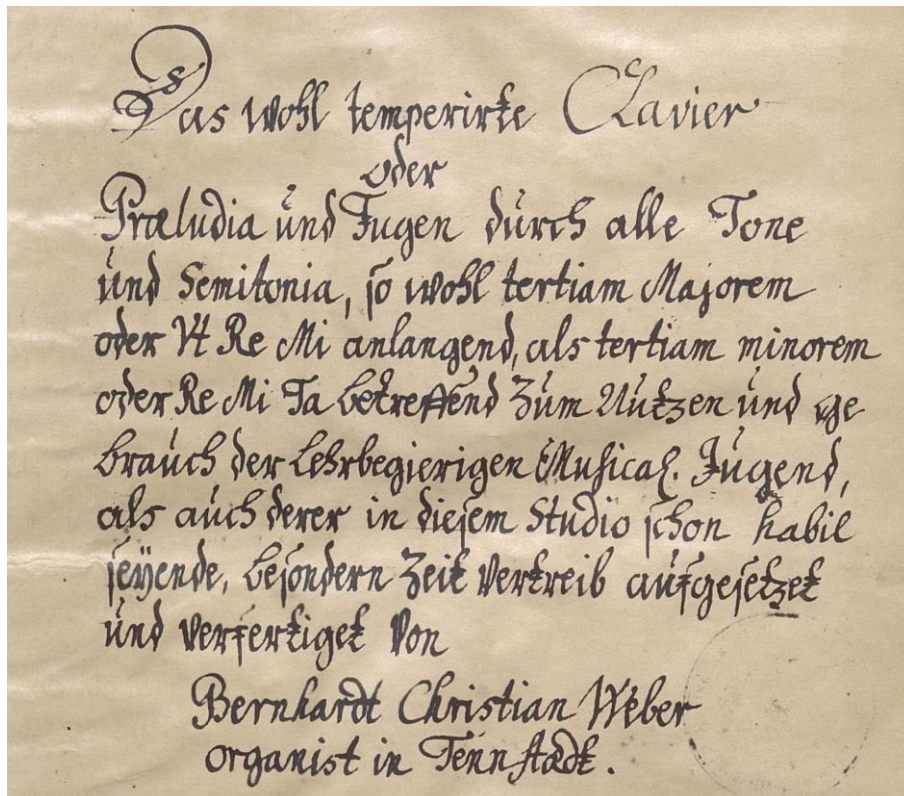 Das wohl temperirte Clavier
oder
Præludia und Fugen durch alle Tone
und Semitonia, so wohl tertiam Majorem
oder Vt Re Mi anlangend, als tertiam minorem
oder Re Mi Fa betreffend Zum Nutzen und ge
brauch der Lehrbegierigen Musical. Jugend,
als auch derer in diesem Studio schon habil
seÿende, besondern Zeit Vertreib aufgesetzet
und verfertiget von
Bernhardt Christian Weber
organist in Tennstædt.